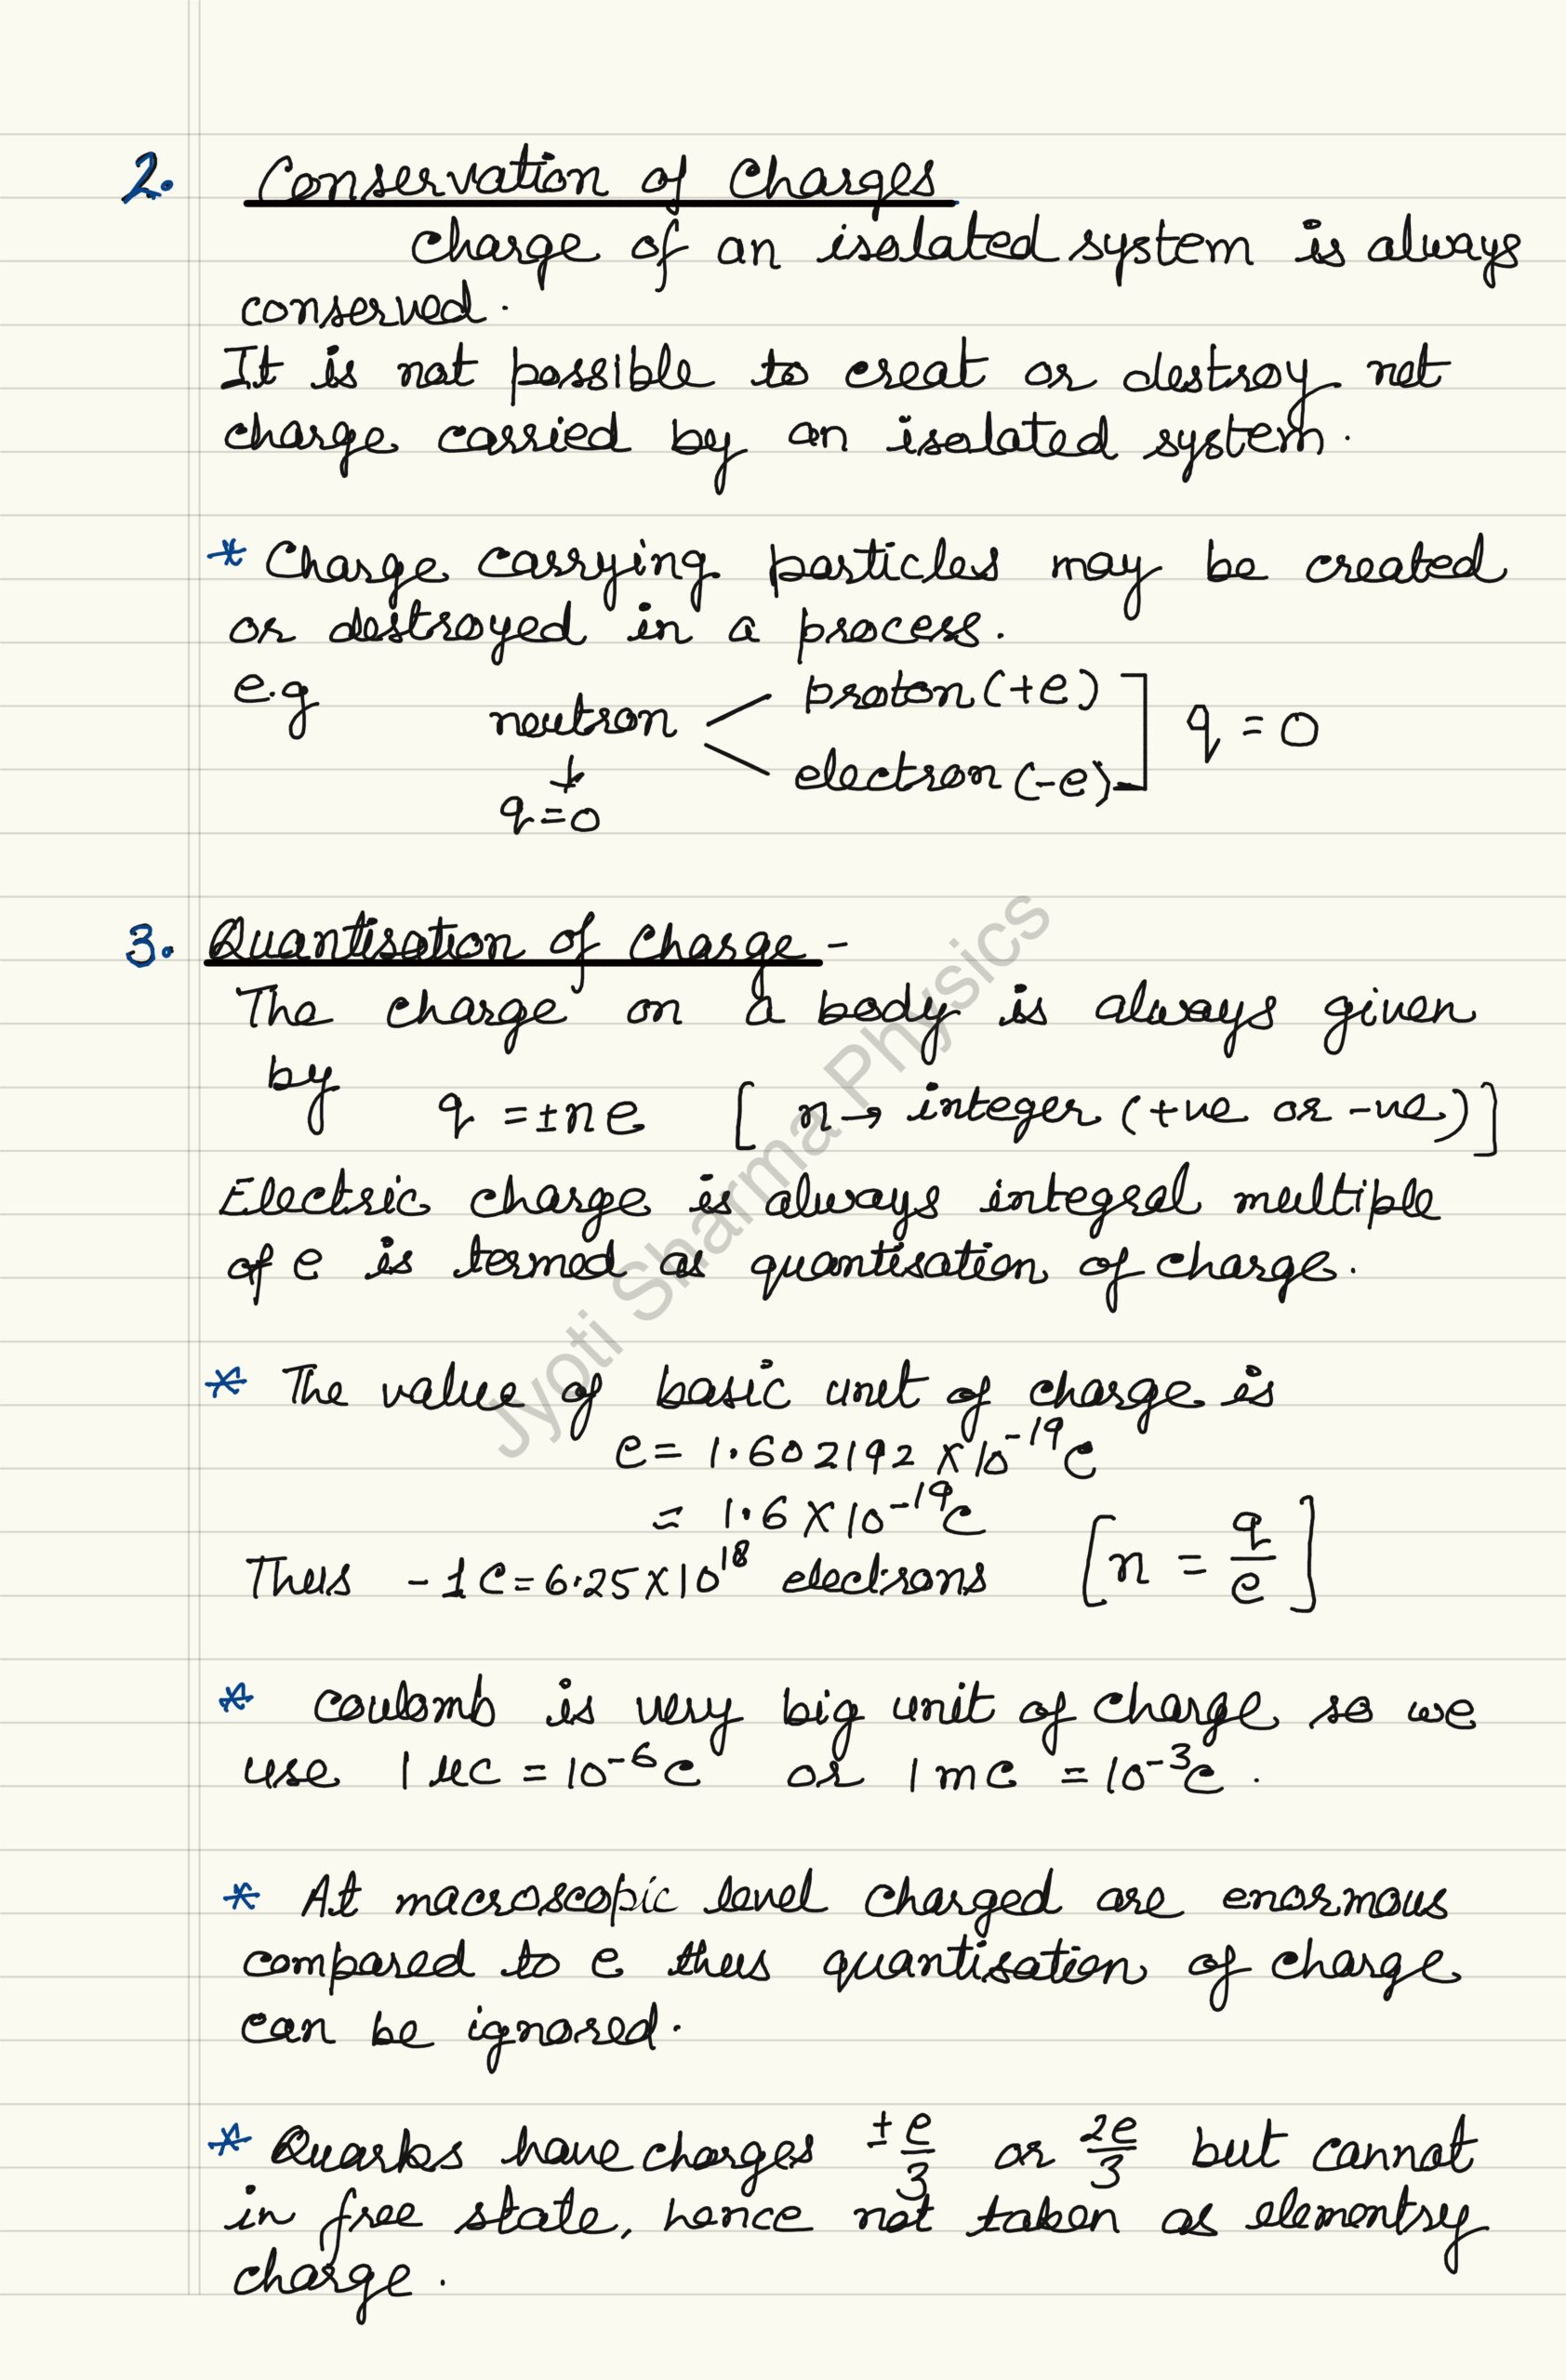 2. Conservation of Charges
charge of an isolated system is always
conserved.
It is not possible to creat or destroy net
charge carried by an isolated system.
* Charge carrying particles may be created
or destroyed in a process.
e.g
proton (+e)
neutron
q = 0
electron (-e)
↓
q=0
3. Quantisation of Charge -
The charge on a body is always given
by q = ±ne [ n → integer (+ve or -ve) ]
Electric charge is always integral multiple
of e is termed as quantisation of charge.
* The value of basic unit of charge is
e = 1.602192 × 10⁻¹⁹ C
= 1.6 × 10⁻¹⁹ C
Thus -1C = 6.25 × 10¹⁸ electrons [ n = q/e ]
* coulomb is very big unit of charge so we
use 1 μc = 10⁻⁶ C or 1 mc = 10⁻³ C.
* At macroscopic level charged are enormous
compared to e thus quantisation of charge
can be ignored.
* Quarks have charges ± e/3 or 2e/3 but cannot
in free state, hence not taken as elementry
charge.
Jyoti Sharma Physics